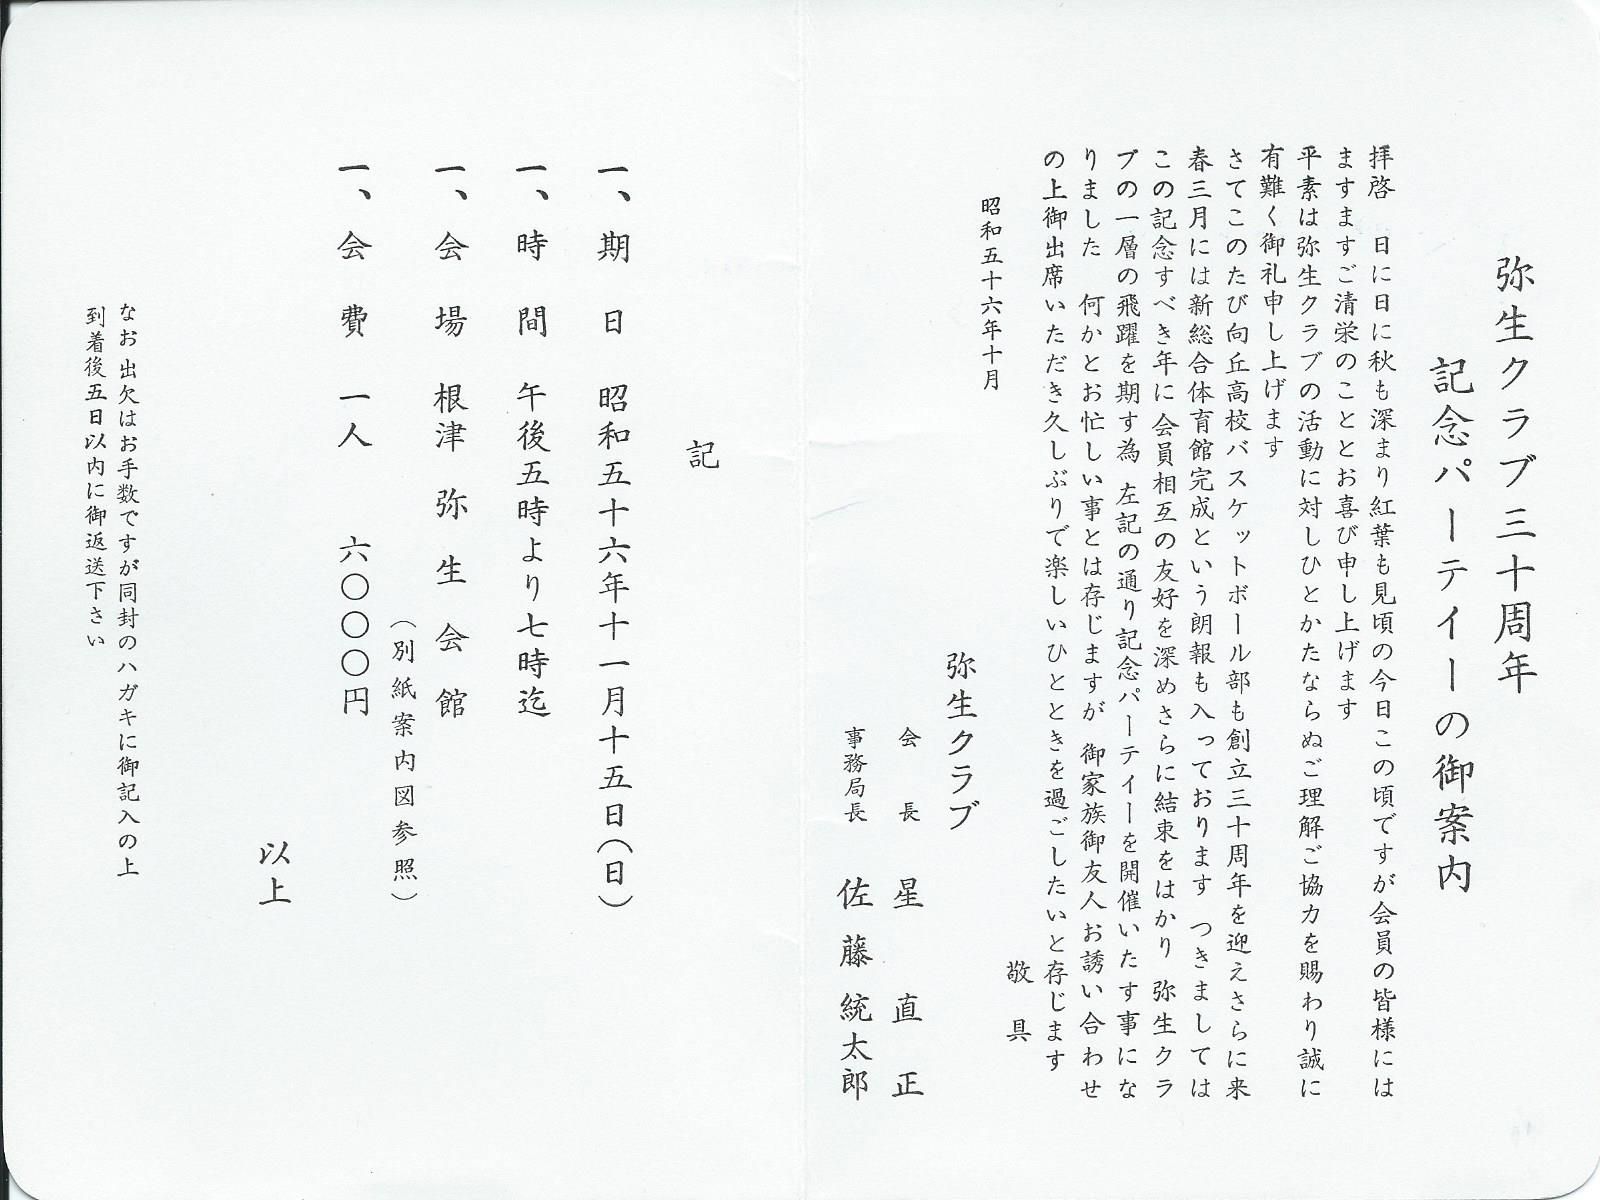 弥生クラブ三十周年
記念パーテイーの御案内
拝啓　日に日に秋も深まり紅葉も見頃の今日この頃ですが会員の皆様には
ますますご清栄のこととお喜び申し上げます
平素は弥生クラブの活動に対しひとかたならぬご理解ご協力を賜わり誠に
有難く御礼申し上げます
さてこのたび向丘高校バスケットボール部も創立三十周年を迎えさらに来
春三月には新総合体育館完成という朗報も入っております　つきましては
この記念すべき年に会員相互の友好を深めさらに結束をはかり　弥生クラ
ブの一層の飛躍を期す為　左記の通り記念パーテイーを開催いたす事にな
りました　何かとお忙しい事とは存じますが　御家族御友人お誘い合わせ
の上御出席いただき久しぶりで楽しいひとときを過ごしたいと存じます
敬具
昭和五十六年十月
弥生クラブ
会長　星　直正
事務局長　佐藤統太郎
記
一、期日　昭和五十六年十一月十五日（日）
一、時間　午後五時より七時迄
一、会場　根津弥生会館
（別紙案内図参照）
一、会費　一人　六〇〇〇円
以上
なお出欠はお手数ですが同封のハガキに御記入の上
到着後五日以内に御返送下さい